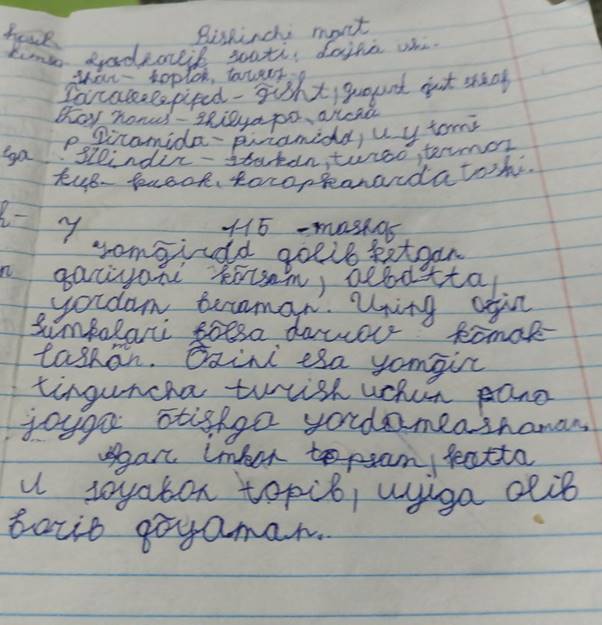 Bishinchi mart
soati,
shar - koptok, tarvuz
Paralelepiped - g'isht, gugurt quti shkaf
Konus - shlyapa, archa
Piramida - piramida, uy tomi
Silindir - stakan, turba, termos
kub - kubok, karopka narda toshi.
7 115 - mashq
yomg'irda qolib ketgan
qariyani ko'rsam, albatta,
yordam beraman. Uning og'ir
sumkalari bo'lsa darrov ko'mak-
lashan. O'zini esa yomg'ir
tinguncha turish uchun pana
joyga o'tishga yordamlashaman.
Agar imkon topsam, katta
soyabon topib, uyiga olib
borib qo'yaman.